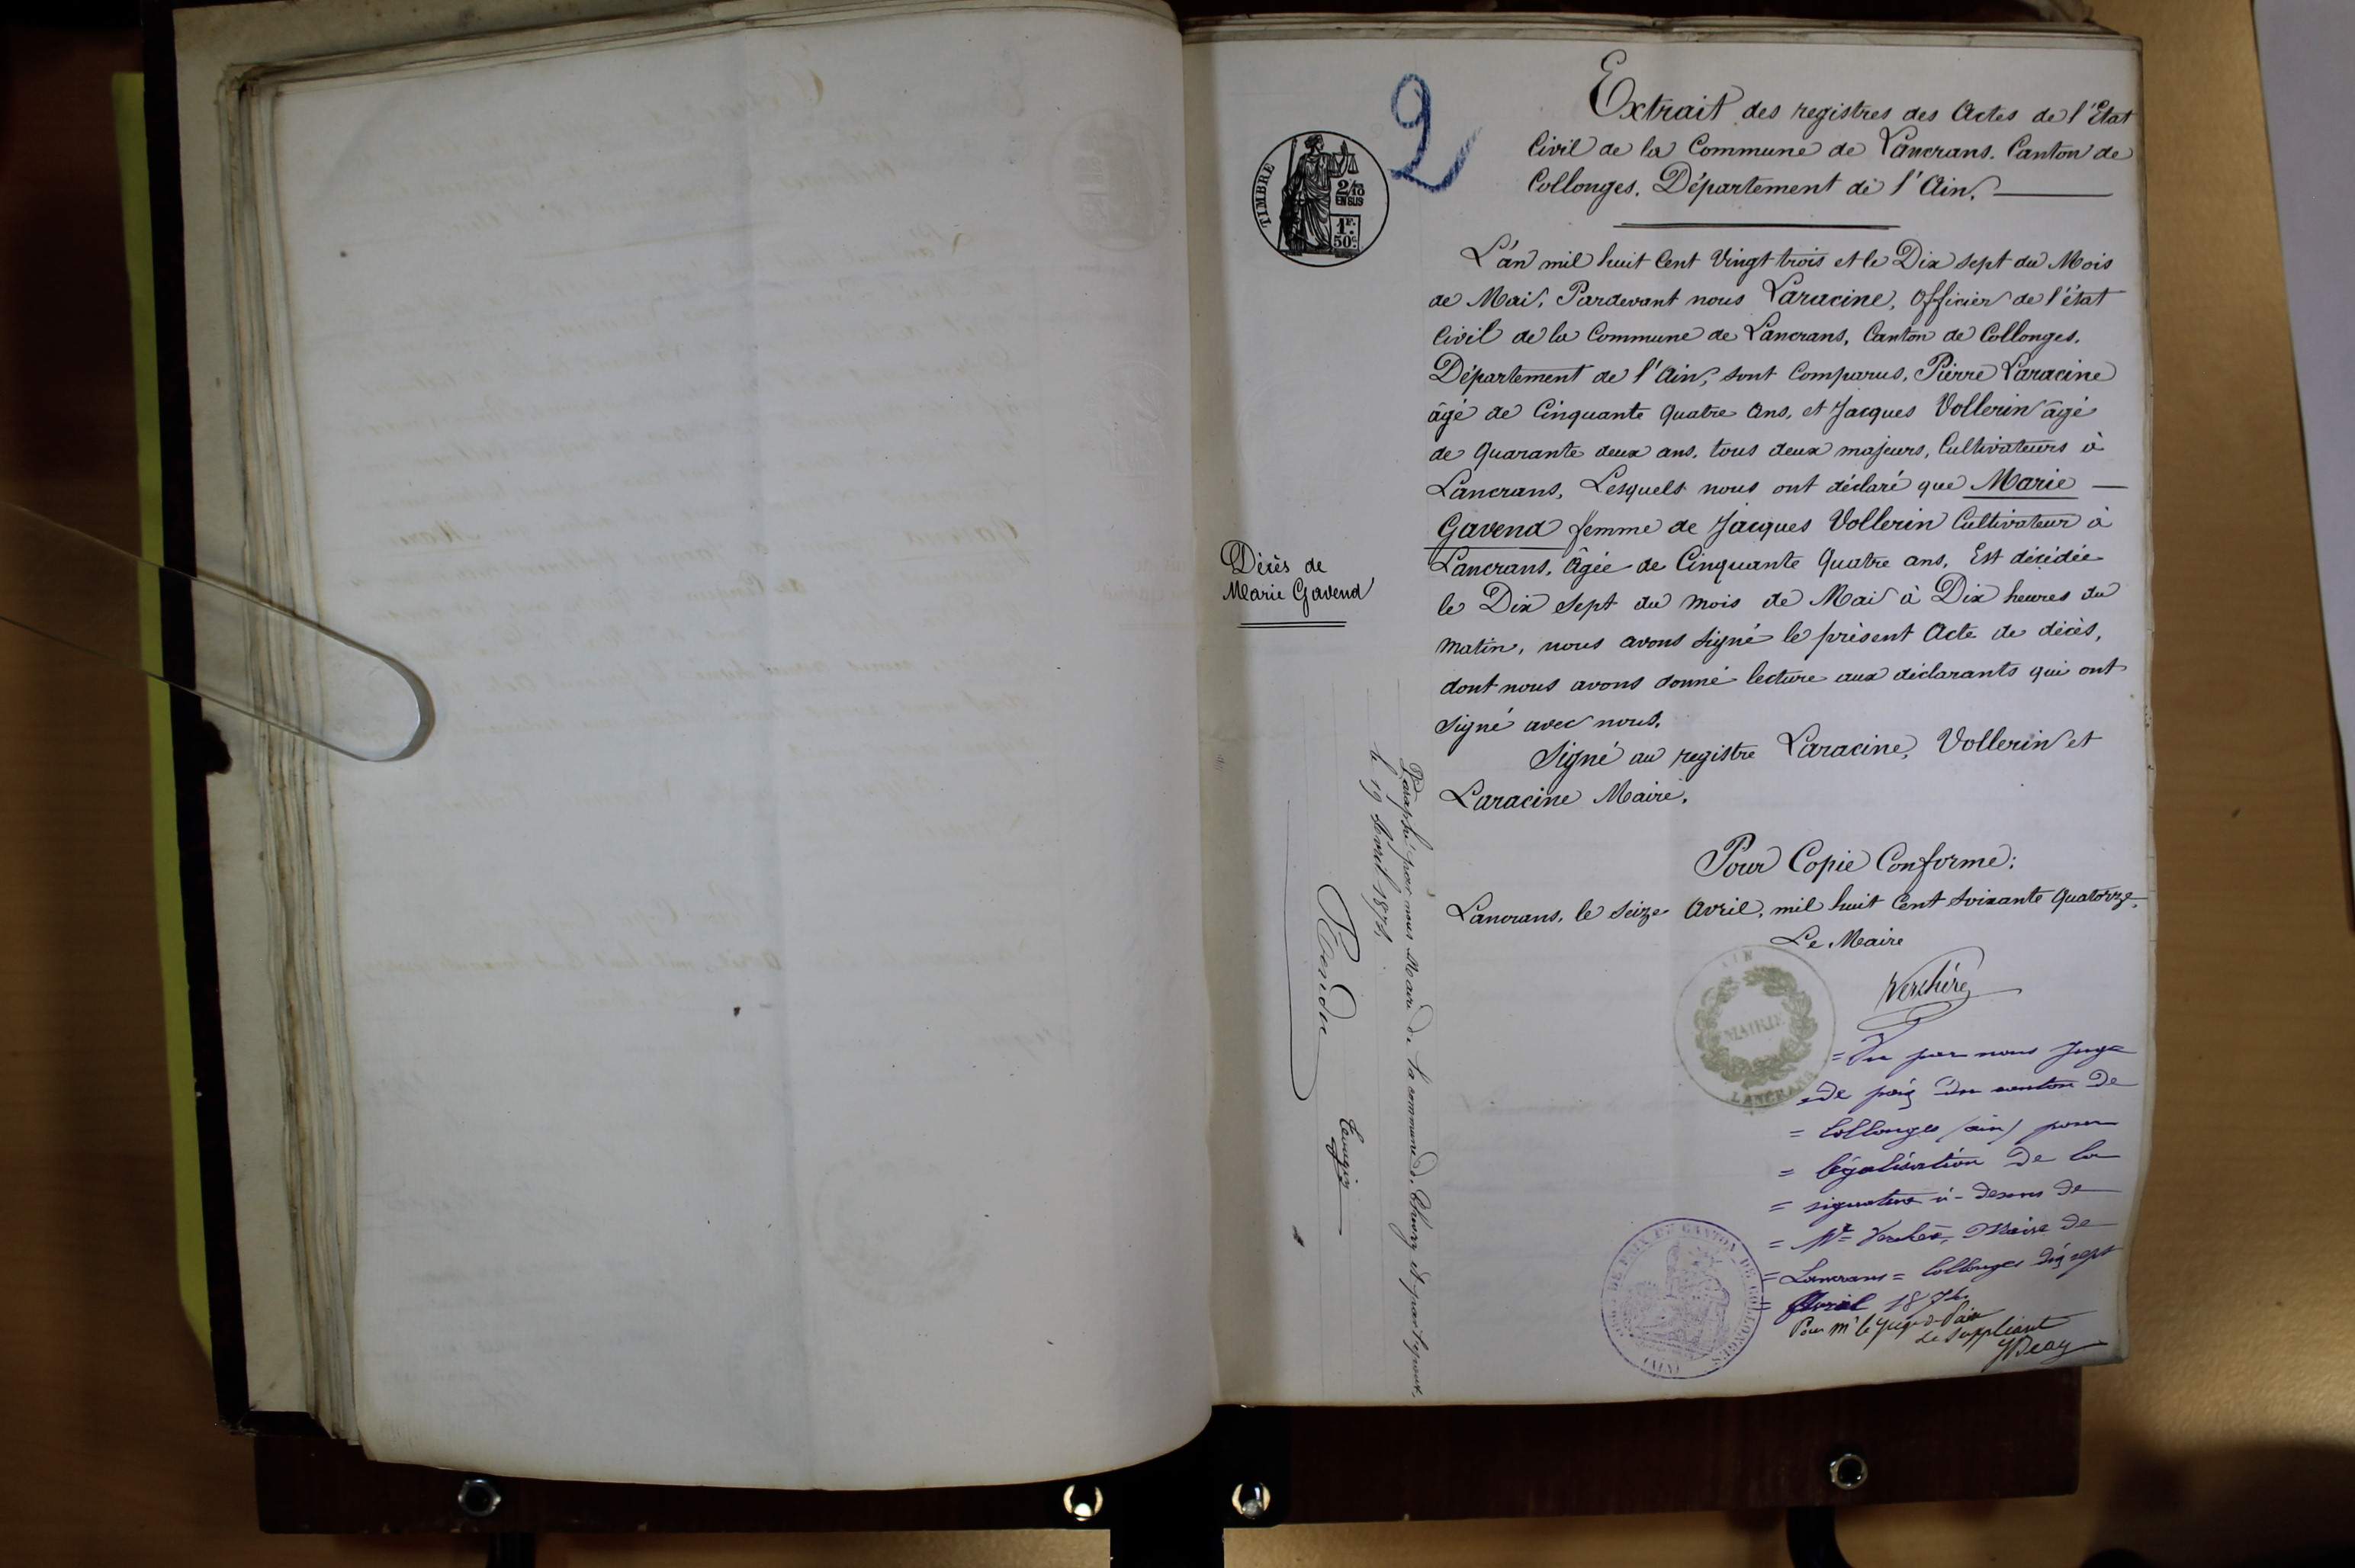 2
TIMBRE
2/10
EN SUS
1F.
50c
Extrait des registres des Actes de l'Etat
Civil de la Commune de Lancrans. Canton de
Collonges. Département de l'Ain.
L'an mil huit Cent Vingt trois et le Dix sept du Mois
de Mai, Pardevant nous Laracine, Officier de l'état
Civil de la Commune de Lancrans, Canton de Collonges,
Département de l'Ain, sont Comparus, Pierre Laracine
âgé de Cinquante quatre Ans, et Jacques Vollerin âgé
de Quarante deux ans, tous deux majeurs, Cultivateurs à
Lancrans, Lesquels nous ont déclaré que Marie
Gavend femme de Jacques Vollerin Cultivateur à
Lancrans, Âgée de Cinquante Quatre ans, Est décédée
le Dix Sept du Mois de Mai à Dix heures du
matin, nous avons signé le présent Acte de décès,
dont nous avons donné lecture aux déclarants qui ont
signé avec nous.
Signé au registre Laracine, Vollerin et
Laracine Maire.
Décès de
Marie Gavend
Pour Copie Conforme:
Lancrans, le Seize Avril, mil huit Cent soixante Quatorze.
Le Maire
Verchère
AIN
MAIRIE
LANCRANS
= Vu par nous Juge
= de paix du canton de
= Collonges (ain) pour
= légalisation de la
= signature ci-dessus de
= Mr Verchère, Maire de
= Lancrans = Collonges dix sept
= Avril 1874
Pour Mr le Juge de Paix
Le Suppléant
DE PAIX DU CANTON DE COLLONGES
(AIN)
Paraphé par nous Maire de la commune de
le 19 Avril 1874